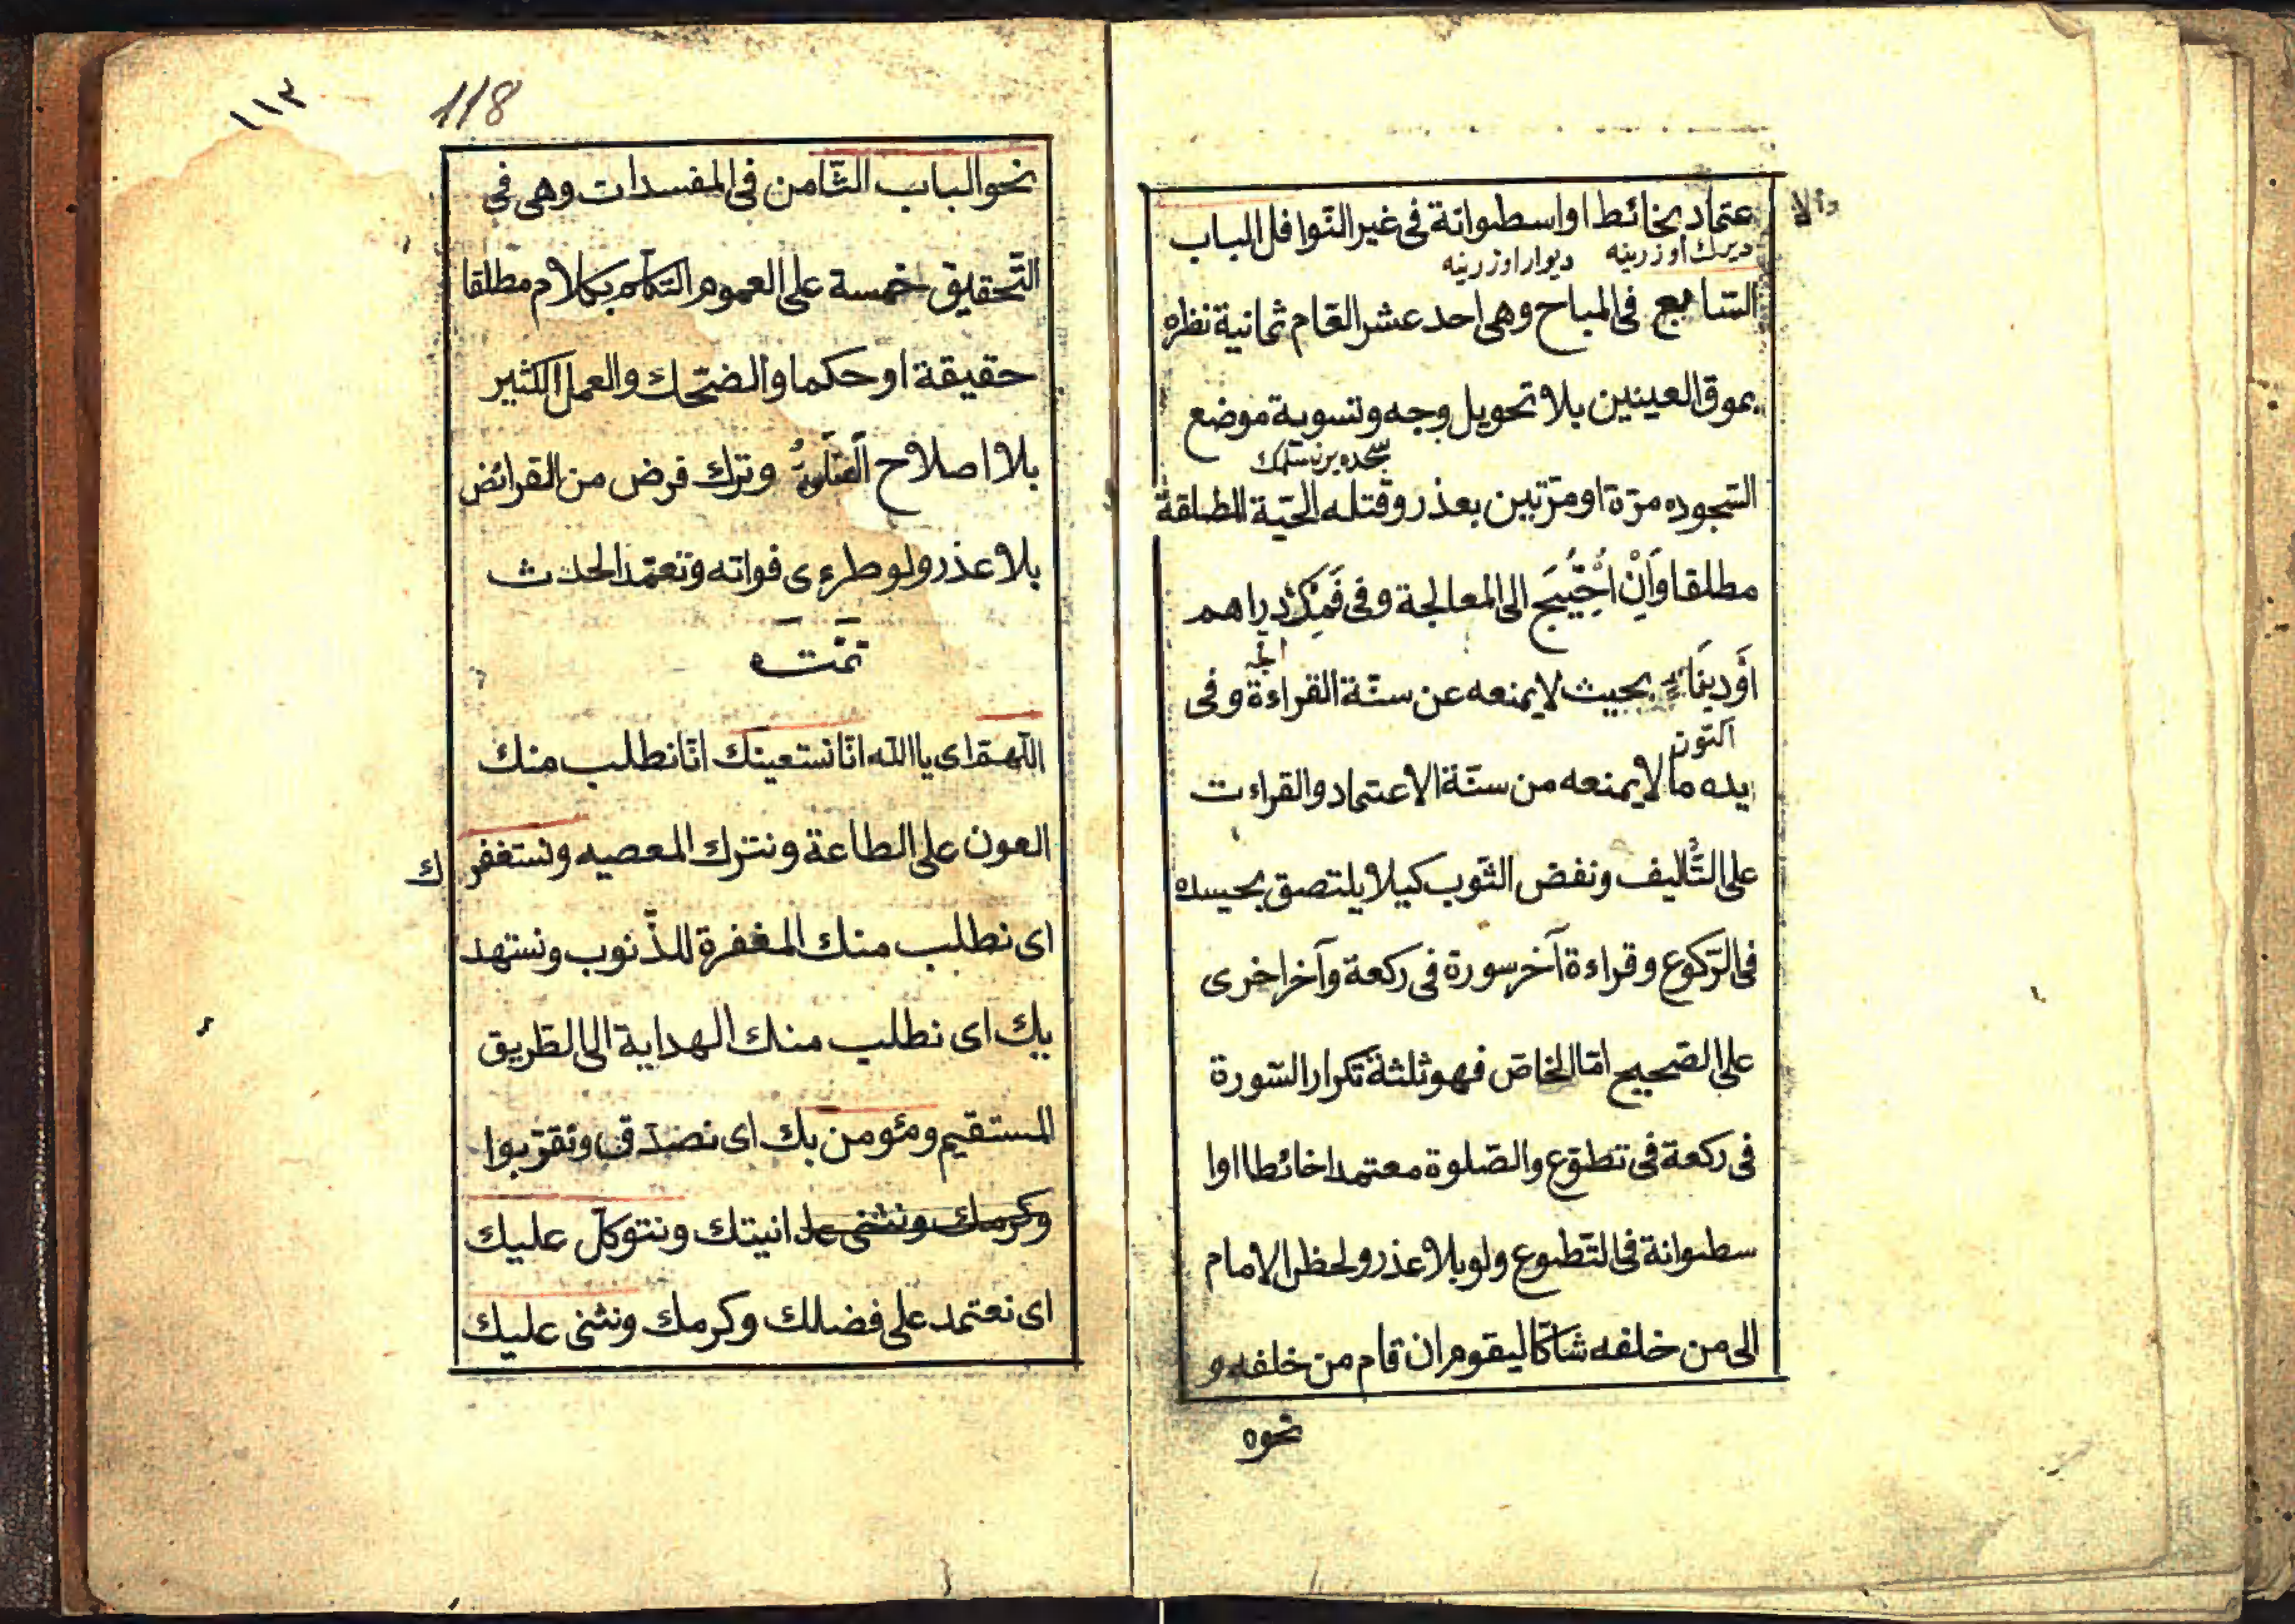 والا
عتماد بخائط او اسطوانة فى غير النوافل الباب
ديرك اوزرينه ديوار اوزرينه
السّابع فى المباح وهى احد عشر العام ثمانية نظره
بموق العينين بلا تحويل وجه وتسوية موضع
سجده يرن
السّجوده مرّة او مرّتين بعذر وقتله الحيّة المطلقة
مطلقا وَاِنْ اُحْتِيجَ الى المعالجة وفى فَمِهِ دراهم
أَودينَا بحيث لا يمنعه عن سنّة القراءة وفى
يده ما لا يمنعه من سنّة الاعتماد والقراءت
على التّأليف ونفض الثّوب كيلا يلتصق بحيسده
فى الرّكوع وقراءة آخر سورة فى ركعة وآخر اخرى
على الصّحيح امّا الخاصّ فهو ثلثة تكرار السّورة
فى ركعة فى تطوّع والصّلوة معتمدا خائطا اوا
سطوانة فى التّطوع ولو بلا عذر ولحظ الامام
الى من خلفه شاكّا ليقوم ان قام من خلفه و
نحوه
١١٣
118
نحو الباب الثّامن فى المفسدات وهى فى
التّحقيق خمسة على العموم التكلّم بكلام مطلقا
حقيقة او حكما والضّحك والعمل الكثير
بلا اصلاح الصّلوة وترك فرض من القرائض
بلا عذر ولو طرءى فواته وتعمّد الحدث
تمت
اللّهمّ اى يا اللّه انّا نستعينك انّا نطلب منك
العون على الطاعة ونترك المعصيه ونستغفرك
اى نطلب منك المغفرة للذّنوب ونستهد
بك اى نطلب منك الهداية الى الطّريق
المستقيم ومئومن بك اى نصدّق ونقرّبوا
وكرمك ونثنى عل انيتك ونتوكّل عليك
اى نعتمد على فضلك وكرمك ونثنى عليك